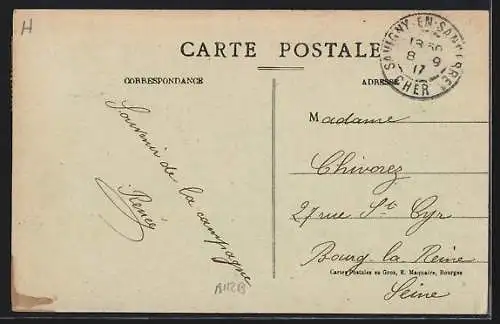 H
CARTE POSTALE
SAVIGNY-EN-SANCERRE
8 9
17
CHER
CORRESPONDANCE
ADRESSE
Souvenir de la campagne
Renée
Madame
Chivorez
27 rue St Cyr
Bourg la Reine
Cartes Postales en Gros, E. Maquaire, Bourges
Seine